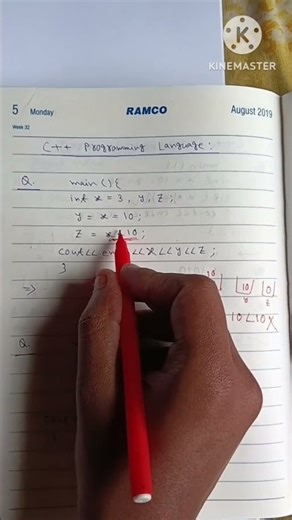 KINEMASTER
5 Monday RAMCO August 2019
Week 32
C++ Programming Language:
Q. main(){
int x = 3, y, z;
y = x = 10;
z = x < 10;
cout<< <<x<<y<<z;
}
⇒
10 10 0
y z
10<10 X
Q.